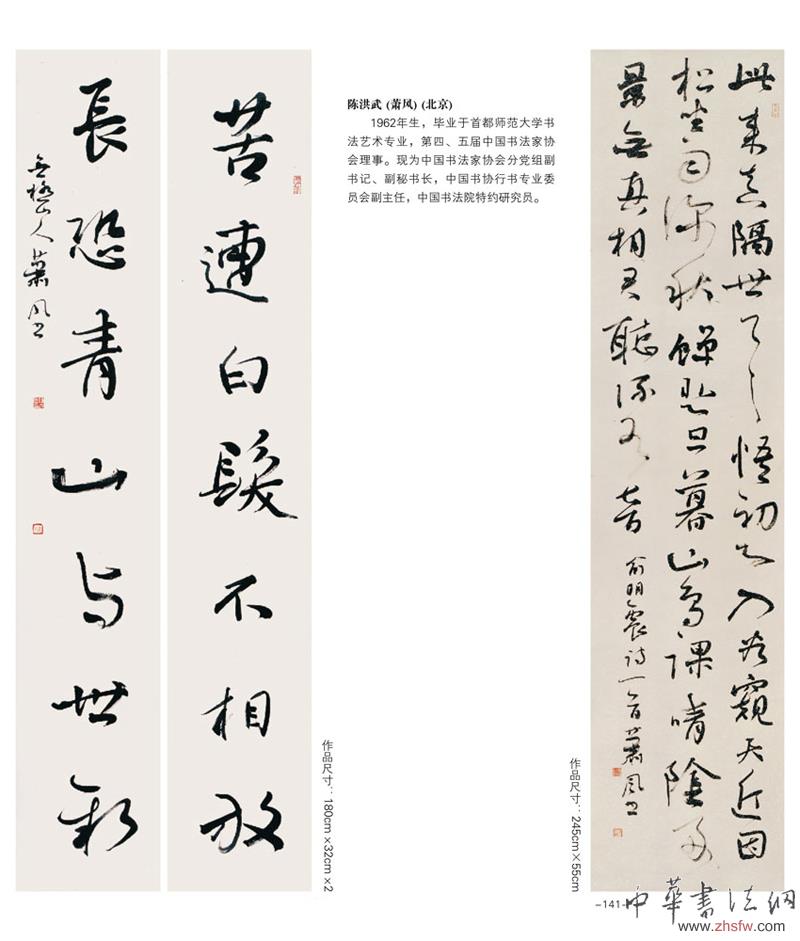 長恐青山与世新
山人蕭风书
苦遭白髮不相放
陈洪武 (萧风) (北京)
1962年生，毕业于首都师范大学书
法艺术专业，第四、五届中国书法家协
会理事。现为中国书法家协会分党组副
书记、副秘书长，中国书协行书专业委
员会副主任，中国书法院特约研究员。
此来真隔世了了悟初心入谷窺天近因
松坐雨深秋蝉悲旦暮山鸟课晴陰
景無真相君聽流水音
俞明震诗一首蕭风书
作品尺寸：180cm×32cm×2
作品尺寸：245cm×55cm
-141-
中華書法網
www.zhsfw.com